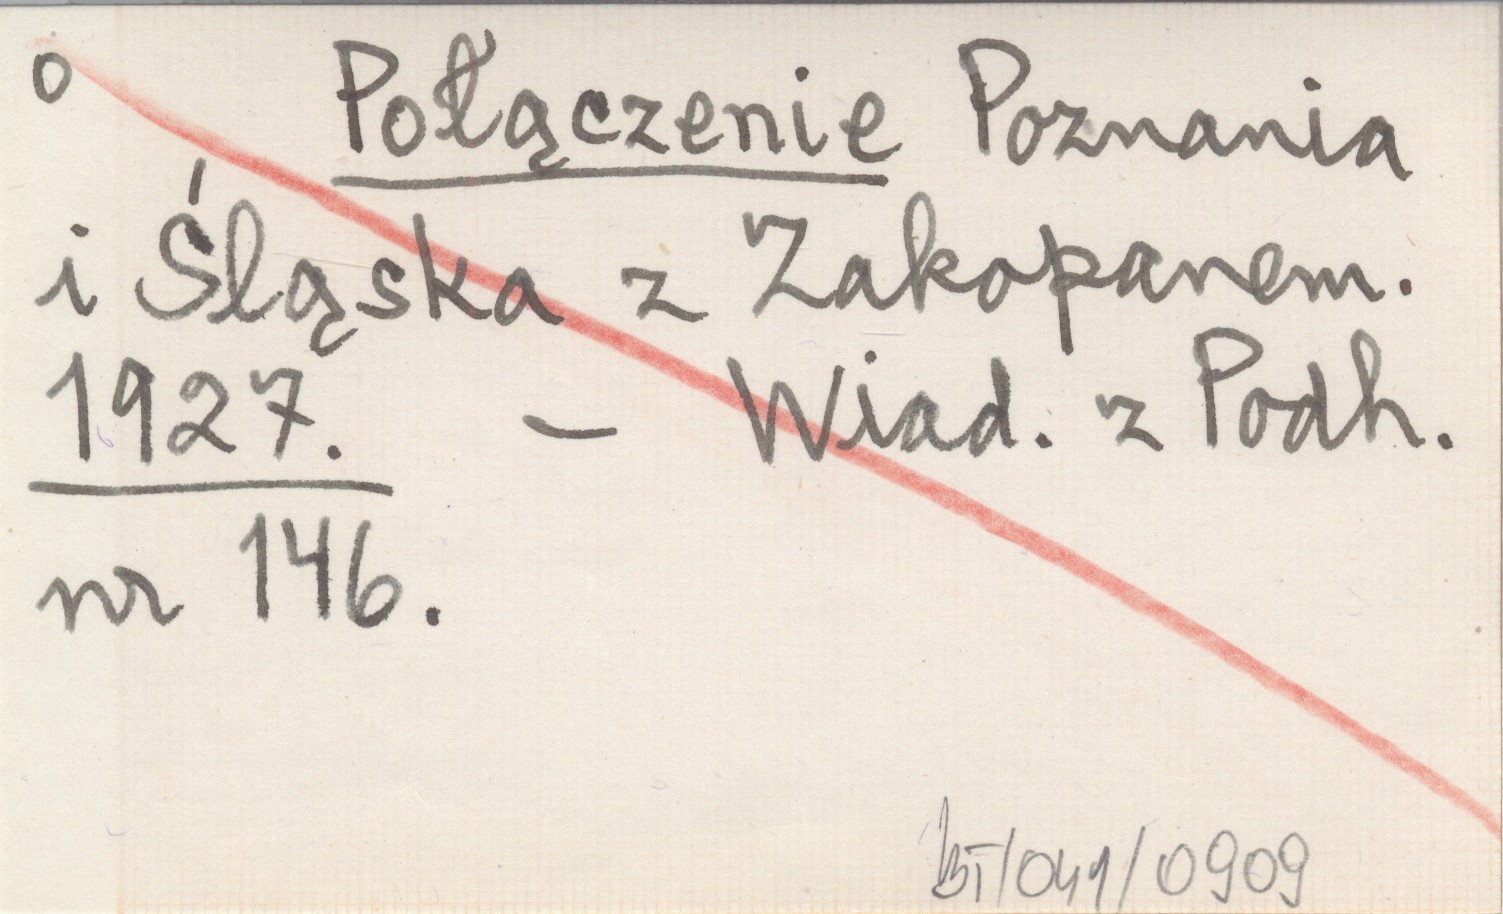 o Połączenie Poznania
i Śląska z Zakopanem.
1927. – Wiad. z Podh.
nr 146.
BT/041/0909